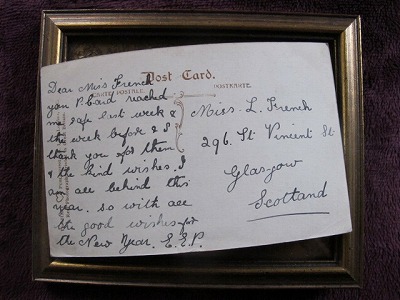 Post Card.
CARTE POSTALE.
POSTKARTE.
Dear Miss French
you P. Card reached
me safe last week &
the week before & I
thank you for them
& the kind wishes. I
am all behind this
year. so with all
the good wishes for
the New Year. E.E.P.
Miss. L. French
296. St Vincent St.
Glasgow
Scotland